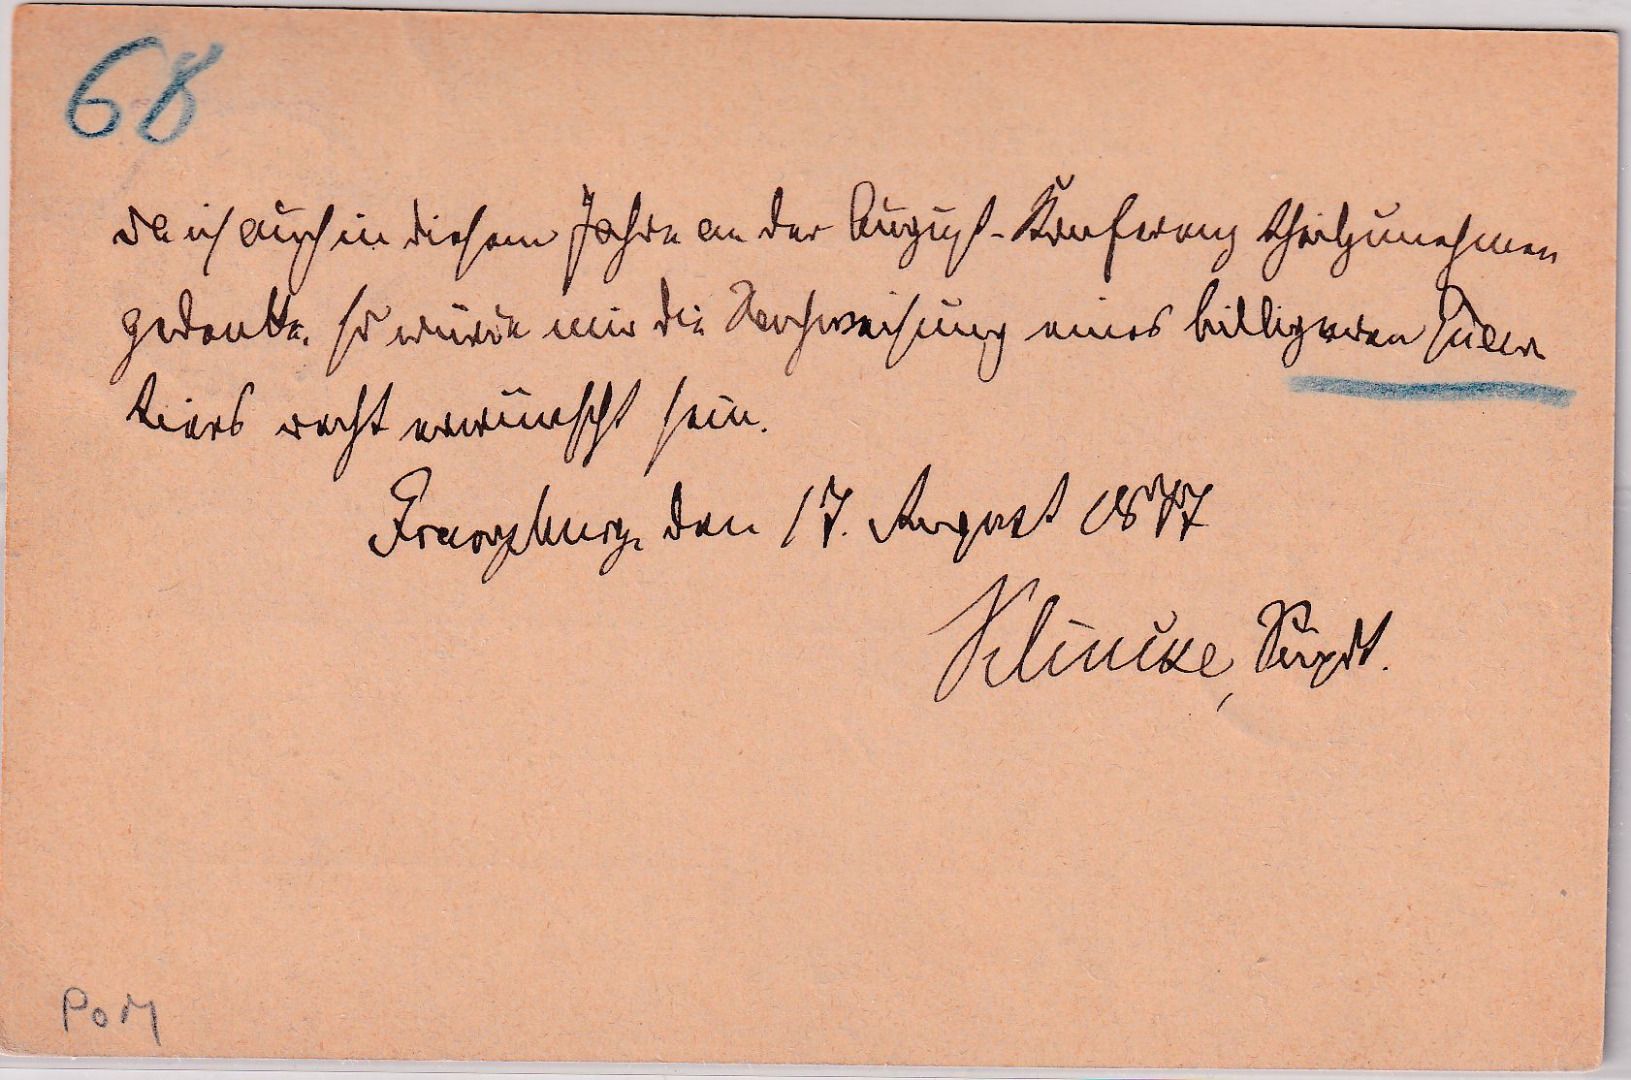 68
Da ich auch in diesem Jahre an der August-Konferenz theilzunehmen
gedenke, so würde mir die Nachweisung eines billigeren Quar
tiers recht erwünscht sein.
Franzburg, den 17. August 1877
Klincke, Supdt.
Pom